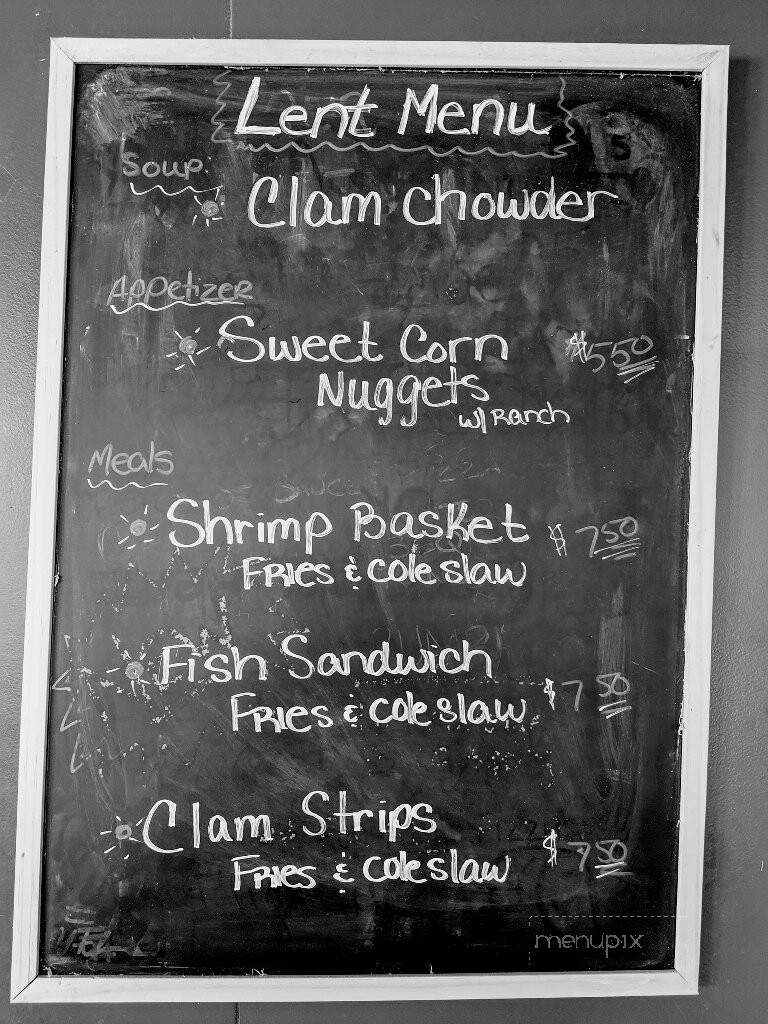 Lent Menu
Soup:
Clam Chowder
Appetizer
Sweet Corn $550
Nuggets
w/ Ranch
Meals
Shrimp Basket $750
Fries & coleslaw
Fish Sandwich $750
Fries & coleslaw
Clam Strips $750
Fries & coleslaw
menupix